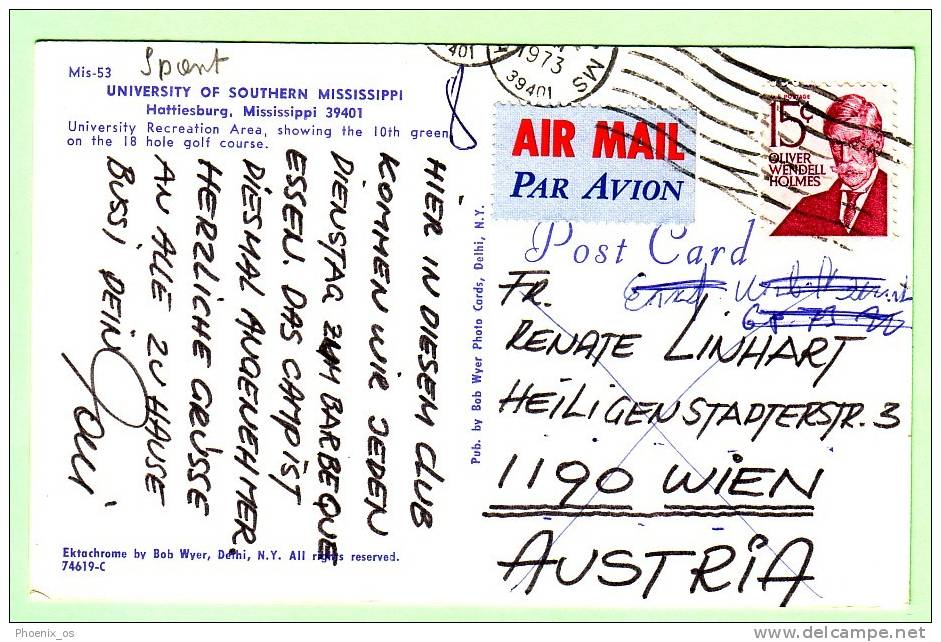 Mis-53
Spont
UNIVERSITY OF SOUTHERN MISSISSIPPI
Hattiesburg, Mississippi 39401
University Recreation Area, showing the 10th green
on the 18 hole golf course.
HIER IN DIESEM CLUB
KOMMEN WIR JEDEN
DIENSTAG ZUM BARBEQUE
ESSEN. DAS CAMP IST
DIESMAL ANGENEHMER.
HERZLICHE GRÜSSE
AN ALLE ZU HAUSE
BUSSI, DEIN
Ektachrome by Bob Wyer, Delhi, N.Y. All rights reserved.
74619-C
8
401
1973
MS
39401
AIR MAIL
PAR AVION
U.S. POSTAGE
15¢
OLIVER
WENDELL
HOLMES
Post Card
Pub. by Bob Wyer Photo Cards, Delhi, N.Y.
FR.
RENATE LINHART
HEILIGENSTADTERSTR. 3
1190 WIEN
AUSTRIA
Phoenix_os
http://www.delcampe.net